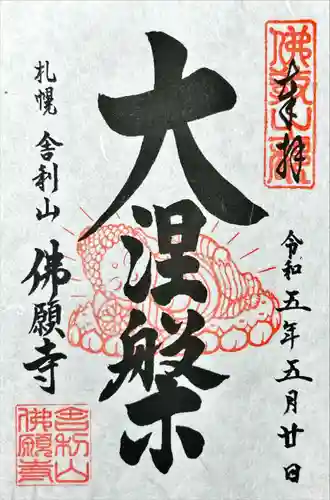 奉拝
令和五年五月廿日
大涅槃
札幌 舎利山
佛願寺
舎利山
佛願寺